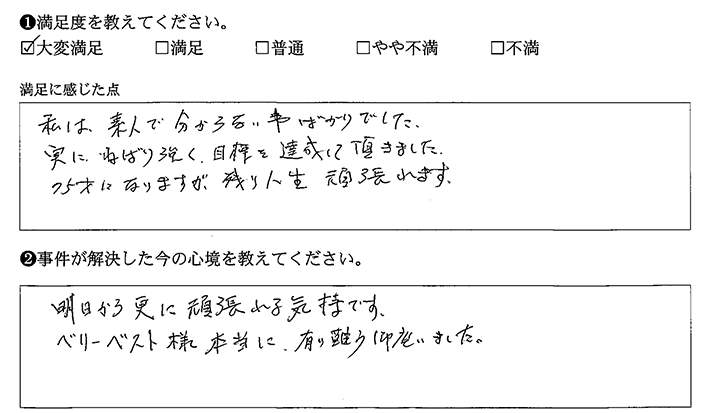 ❶満足度を教えてください。
☑大変満足 □満足 □普通 □やや不満 □不満
満足に感じた点
私は、素人で分からない事ばかりでした。
実に、ねばり強く、目標を達成して頂きました。
75才になりますが、残り人生 頑張れます。
❷事件が解決した今の心境を教えてください。
明日から更に頑張れる気持です。
ベリーベスト様 本当に、有り難う御座いました。